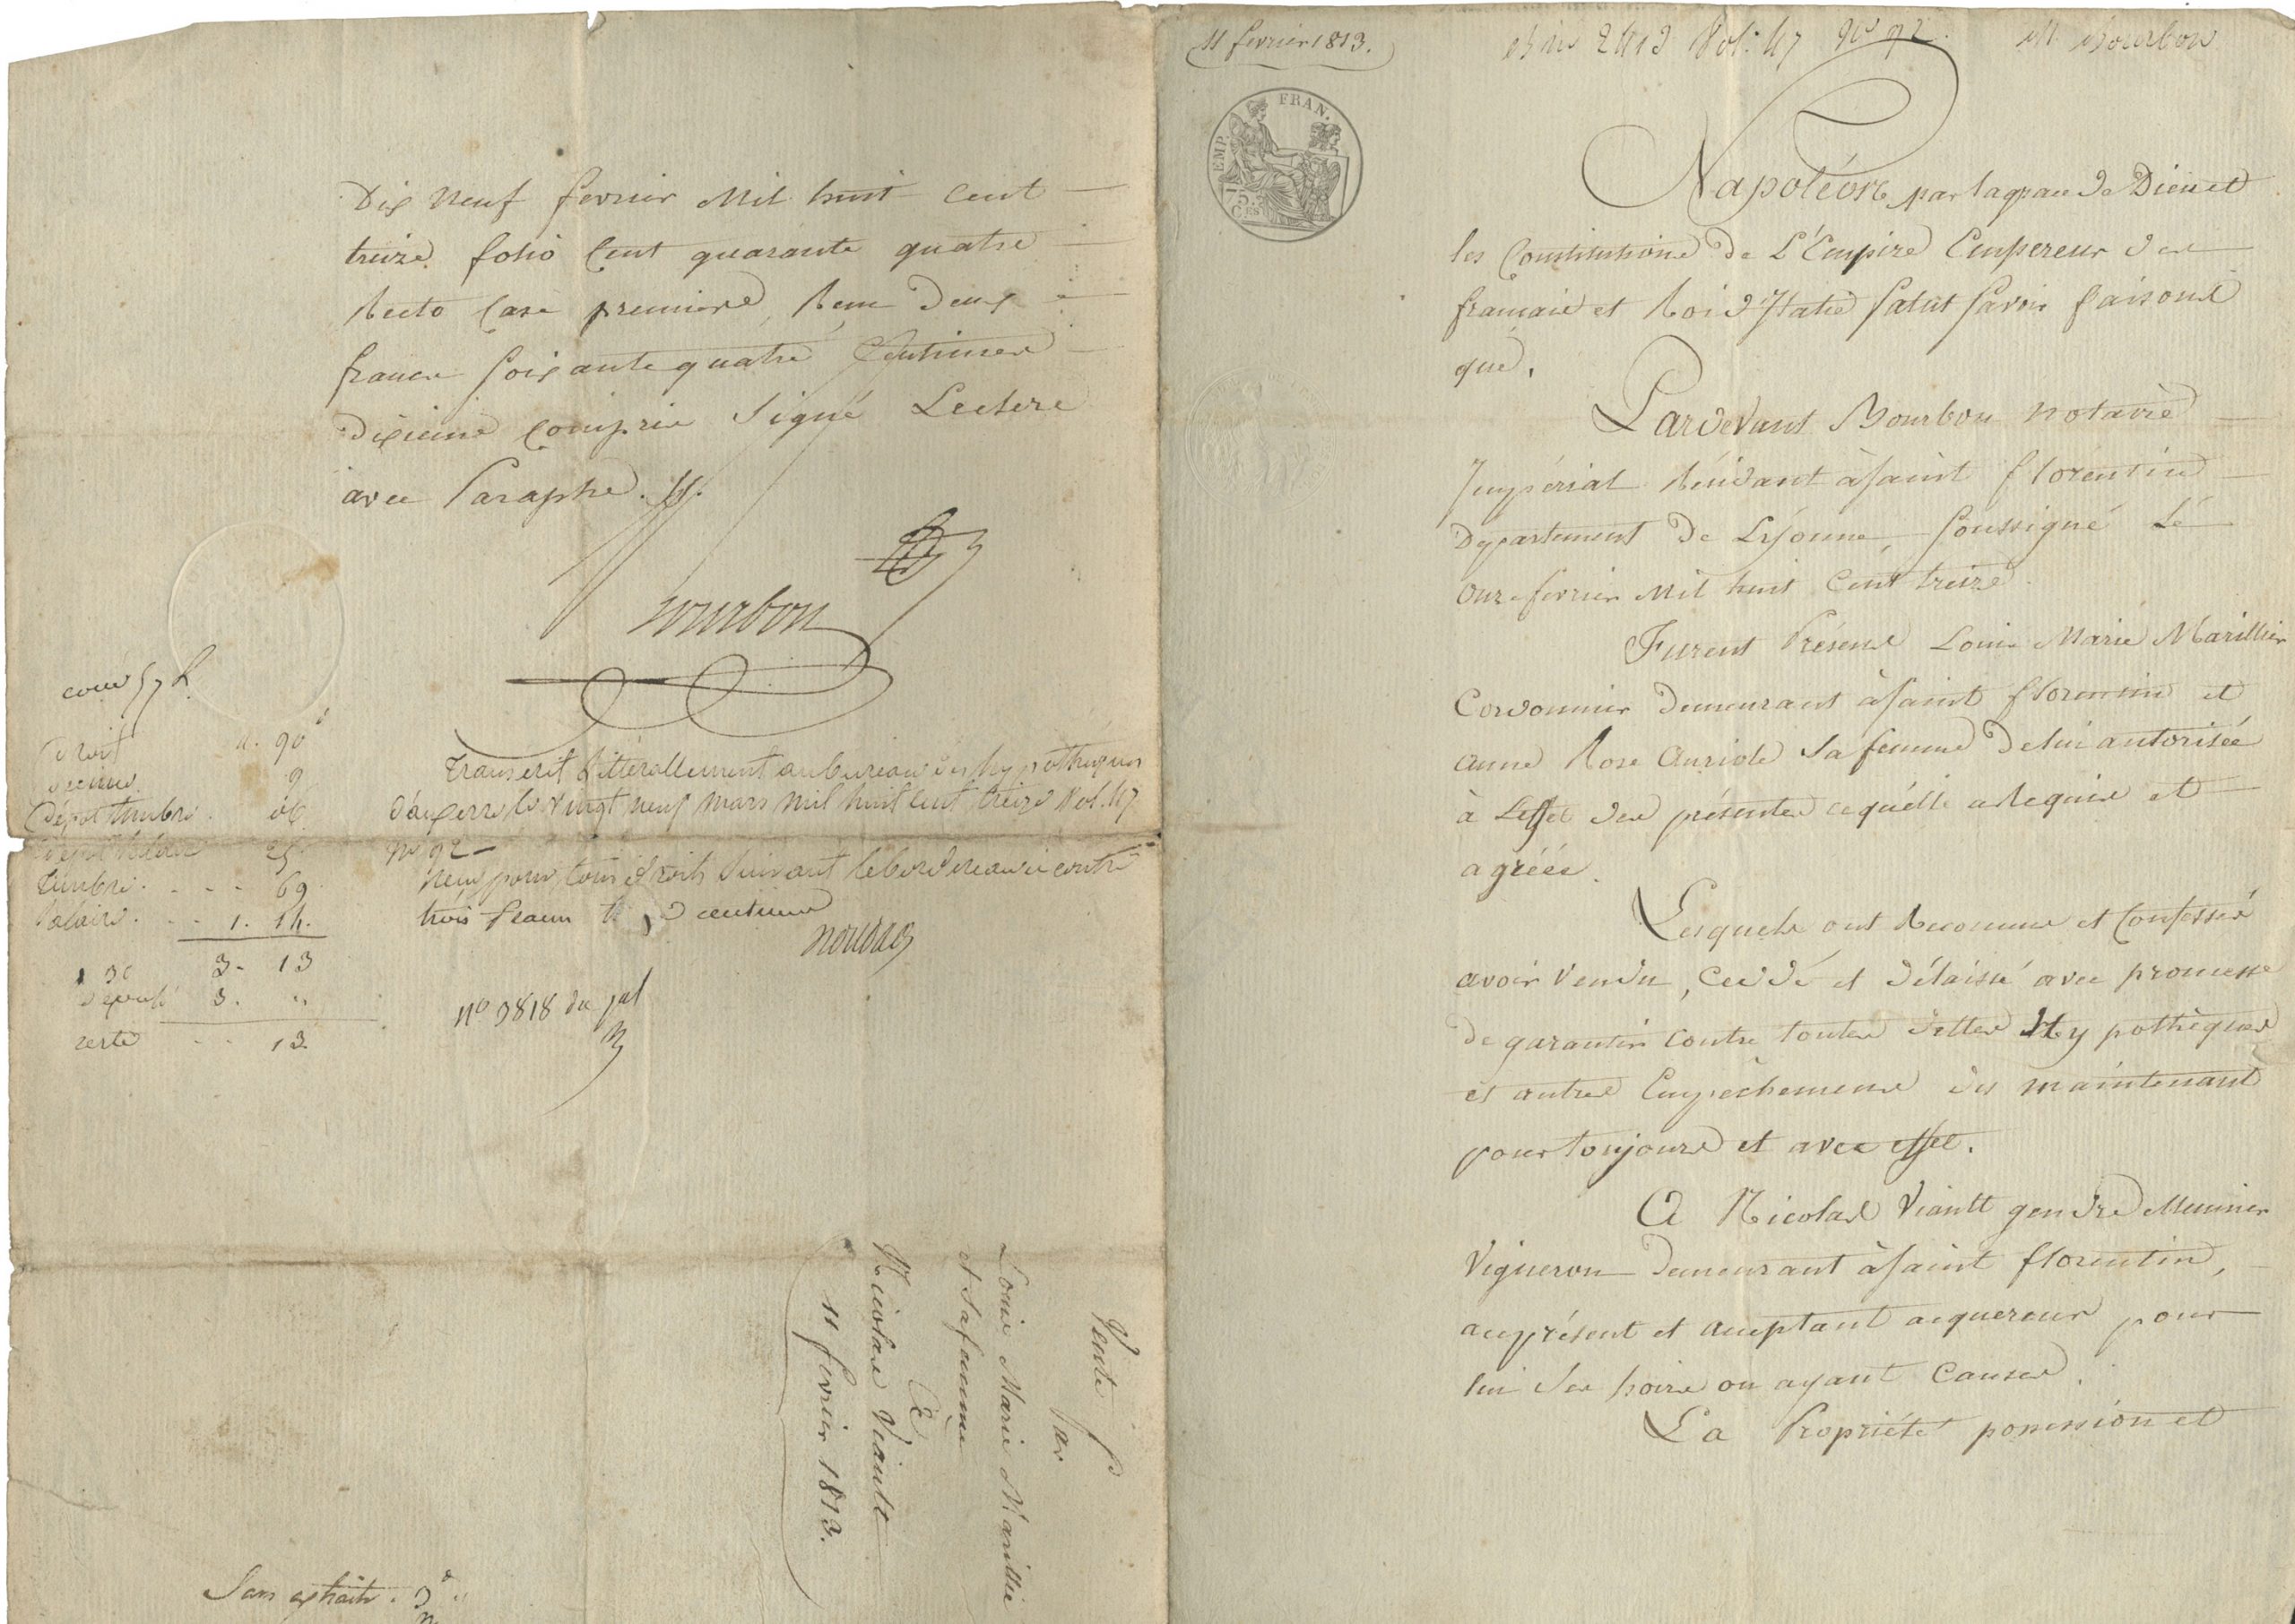 Dix neuf fevrier mil huit cent
treize folio cent quarante quatre
Recto case premiere, Recu deux
francs soixante quatre centimes
dixieme compris signé Leclerc
avec Paraphe.
Bourbon
Droit 90
9
Dépot timbre 06
25
Timbre 69
Salaire 1. 14.
3. 13
3. "
reste 13
Transcrit littérallement au bureau des hypothèques
d'auxerre le vingt neuf mars mil huit cent treize Vol. 47
No 92
Reçu pour tous droits suivant le bordereau ci contre
trois francs centimes
No 3818 du
Vente
Par
Louis Marie Marillier
et sa femme
A
Nicolas Viault
11 fevrier 1813.
11 fevrier 1813.
Vol. 47 No 92. M Bourbon
EMP. FRAN.
75 Ces
Napoléon, par la grace de Dieu et
les Constitutions de L'Empire Empereur des
francais et Roi d'Italie Salut savoir faisons
que.
Pardevant Bourbon notaire
Impérial Résidant à saint florentin
département de L'yonne, soussigné Le
onze fevrier mil huit cent treize.
Furent Présens Louis Marie Marillier
Cordonnier demeurant à saint florentin et
anne Rose Auriole sa femme de lui autorisée
à L'effet des présentes ce qu'elle a Requis et
agréée.
Lesquels ont Reconnu et Confessé
avoir Vendu, Cedé et délaissé avec promesse
de garantir contre toutes dettes Hypothèques
et autres Empêchemens dès maintenant
pour toujours et avec effet.
A Nicolas Viault gendre Meunier
Vigneron demeurant à saint florentin,
ace présent et acceptant acquereur pour
lui ses hoirs ou ayant Causes.
La Propriété possession et